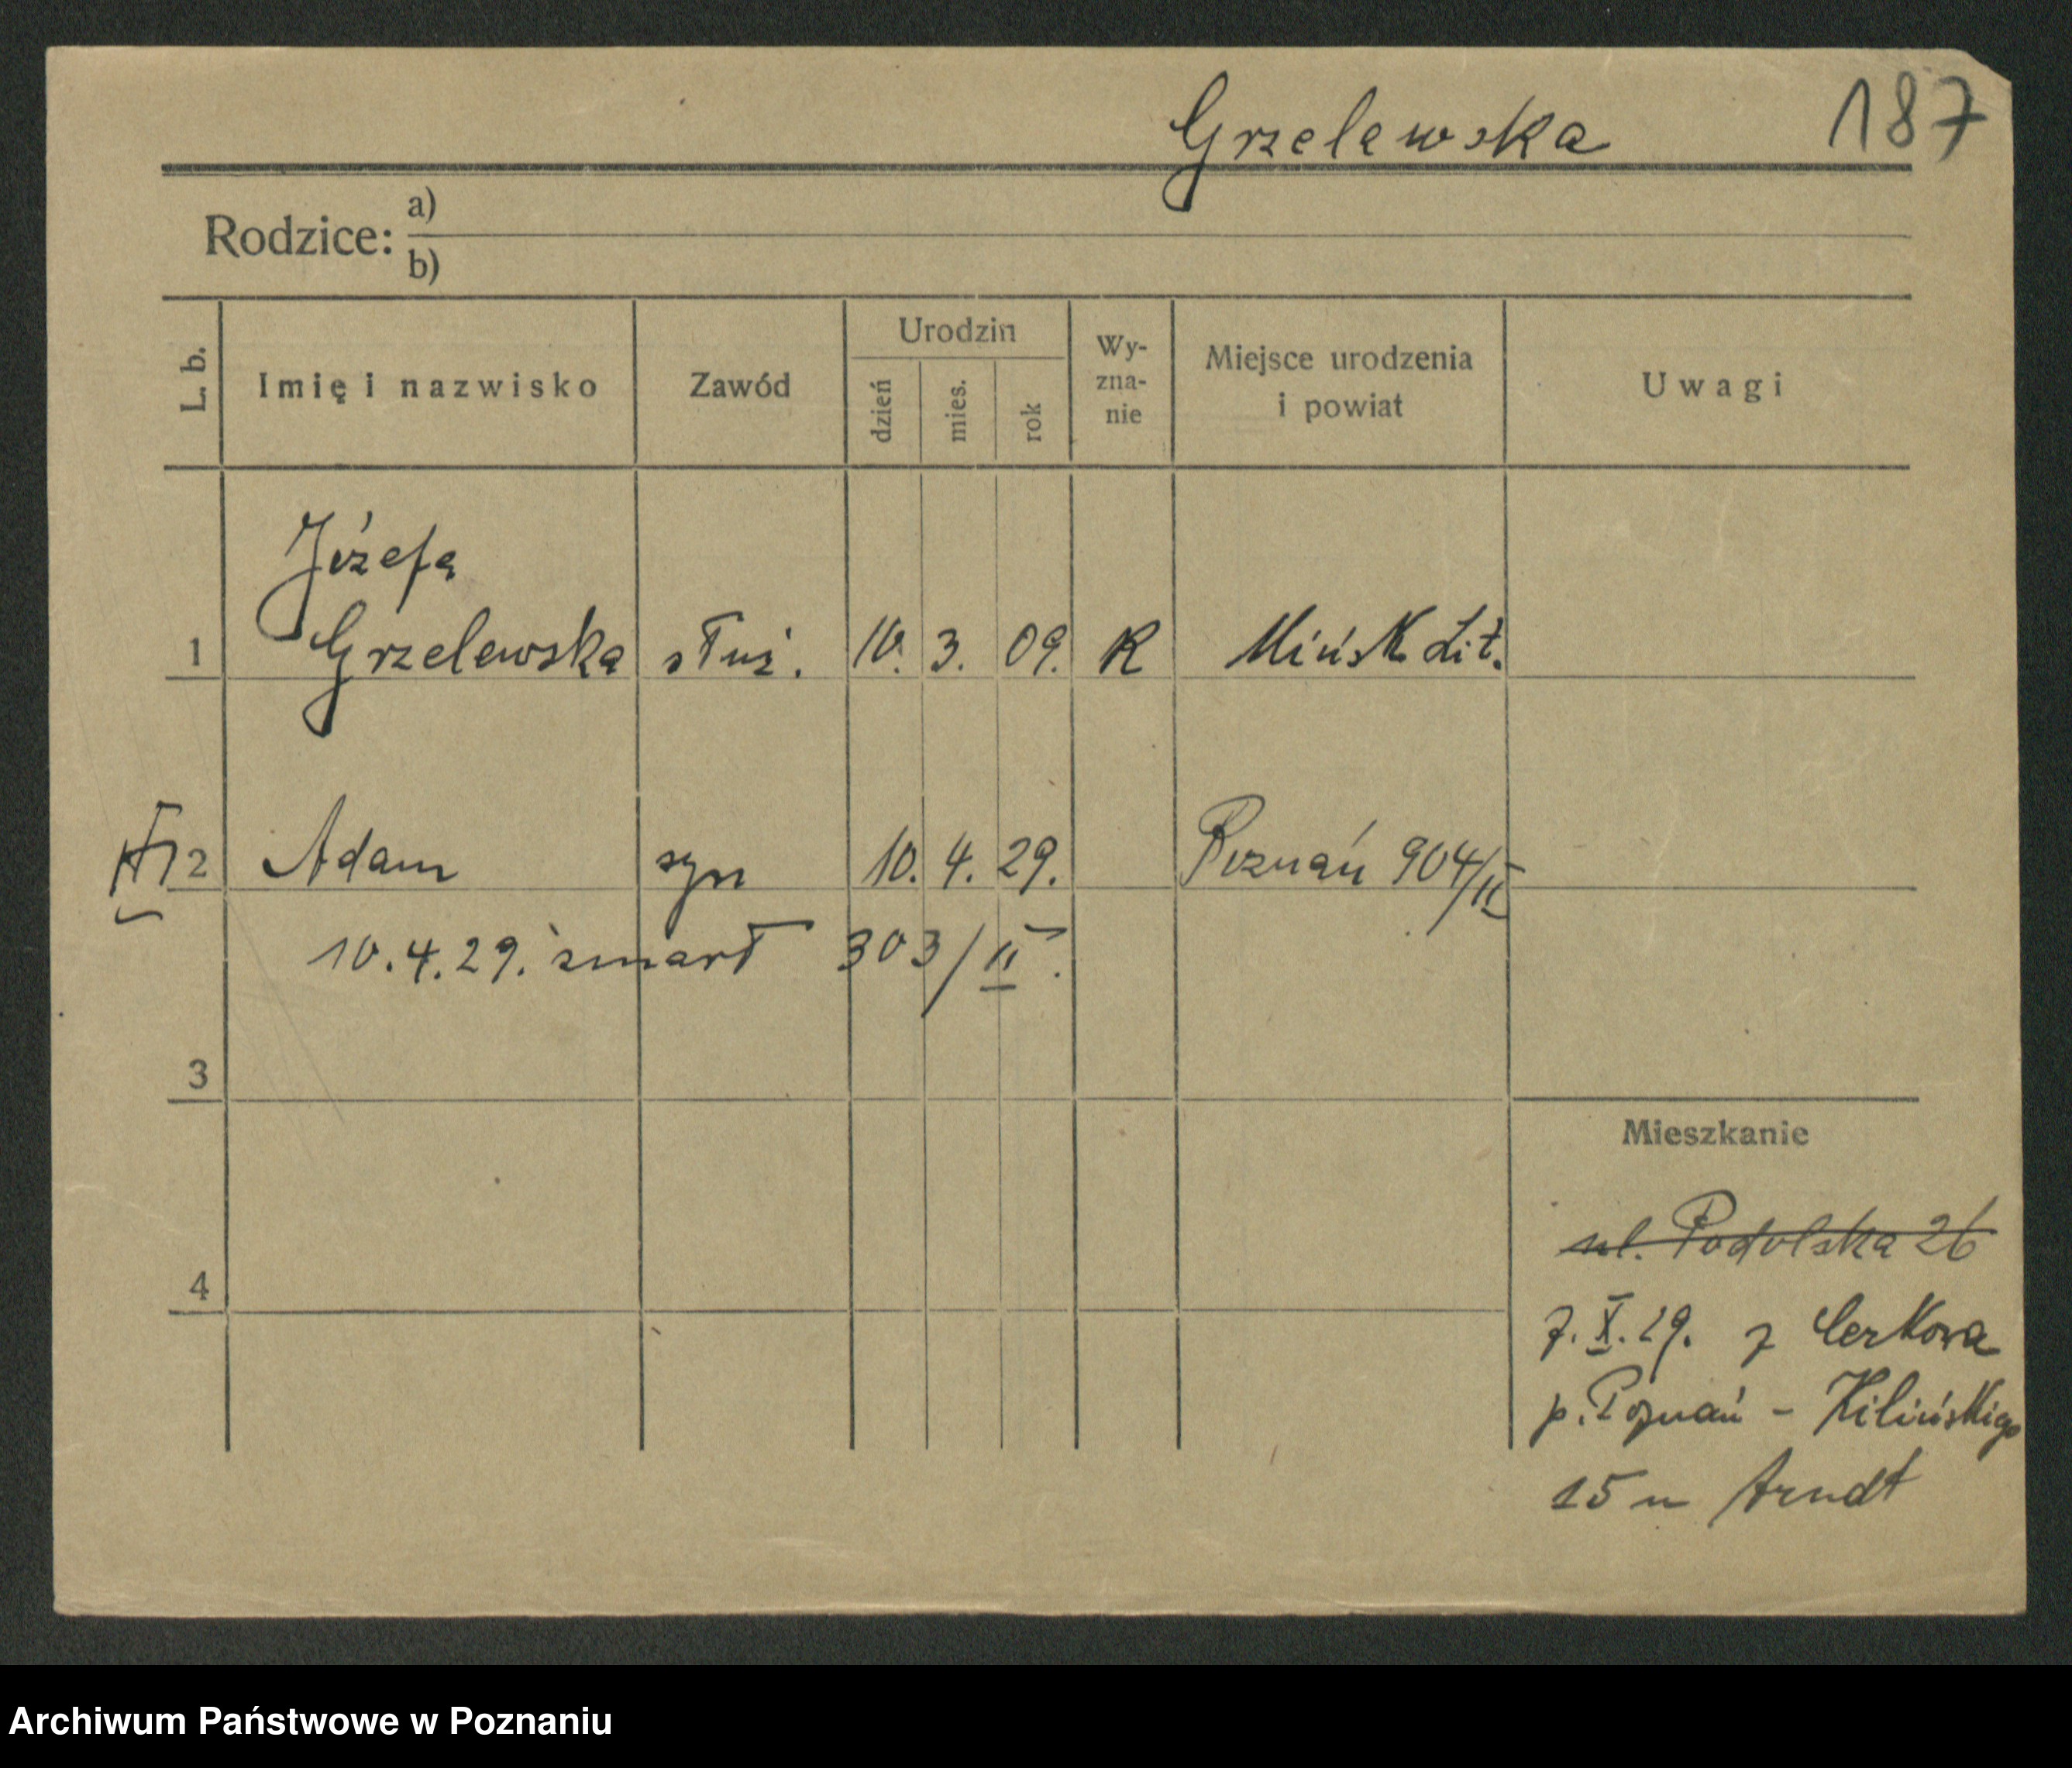 Grzelewska 187
Rodzice: a)
b)
L. b.
Imię i nazwisko
Zawód
Urodzin
dzień
mies.
rok
Wy-
zna-
nie
Miejsce urodzenia
i powiat
Uwagi
Józefa
1 Grzelewska służ. 10. 3. 09. K Mińsk Lit.
2 Adam syn 10. 4. 29. Poznań 904/II
10.4.29. zmarł 303/II.
3
4
Mieszkanie
ul. Podolska 26
7.X.29. z Czerkowa
p. Poznań - Kilińskiego
15 u Arndt
Archiwum Państwowe w Poznaniu